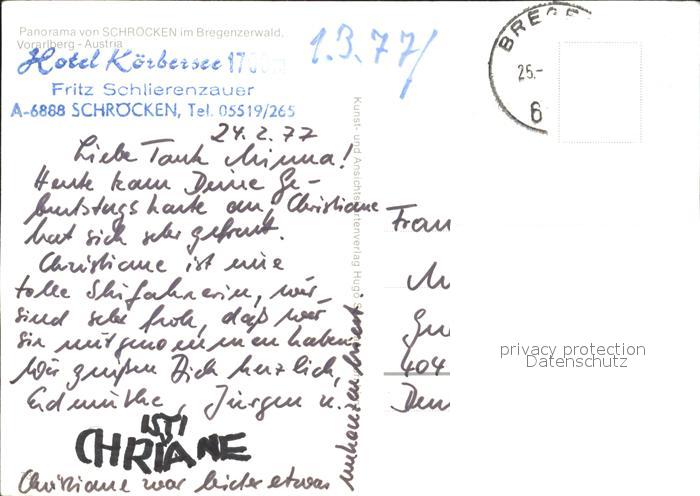 Panorama von SCHRÖCKEN im Bregenzerwald,
Vorarlberg - Austria
Hotel Körbersee 1700m
Fritz Schlierenzauer
A-6888 SCHRÖCKEN, Tel. 05519/265
1.3.77/
BREGE
25.-
6
24.2.77
Liebe Tante Minna!
Heute kam Deine Ge-
burtstagskarte an, Christiane
hat sich sehr gefreut.
Christiane ist eine
tolle Skifahrerin, wir
sind sehr froh, daß wir
sie mitgenommen haben.
Wir grüßen Dich herzlich,
Erdmuthe, Jürgen u.
ISTI
CHRIANE
Christiane war leider etwas
Kunst- und Ansichtskartenverlag Hugo
Frau
404
privacy protection
Datenschutz